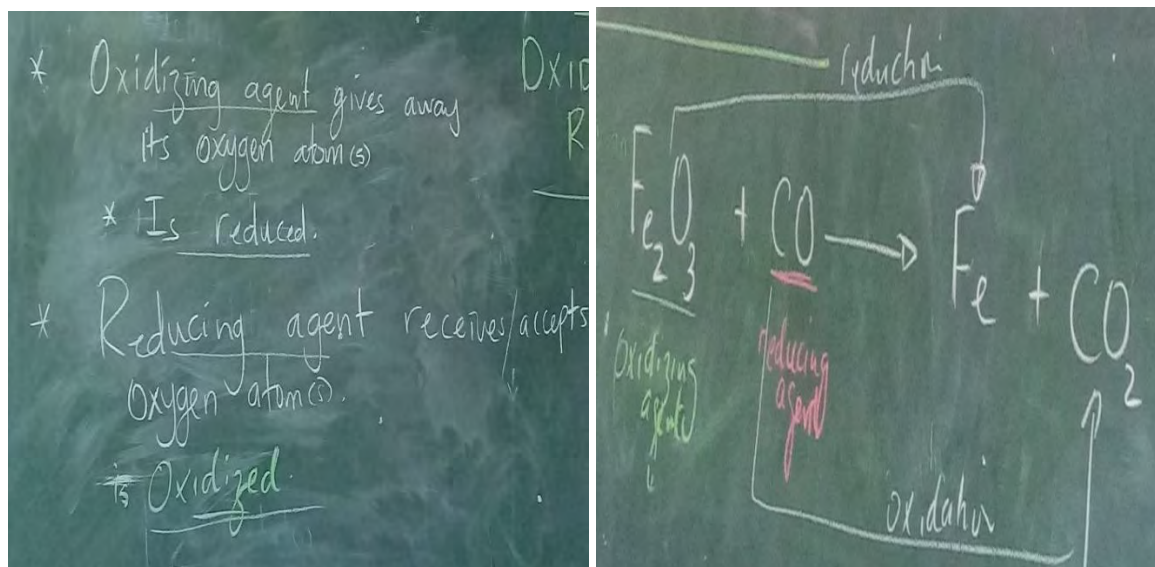 * Oxidizing agent gives away
its oxygen atom(s)
* Is reduced.
* Reducing agent receives/accepts
oxygen atom(s).
is Oxidized.
OXID
R
reduction
Fe2O3 + CO → Fe + CO2
oxidizing
agent
reducing
agent
oxidation